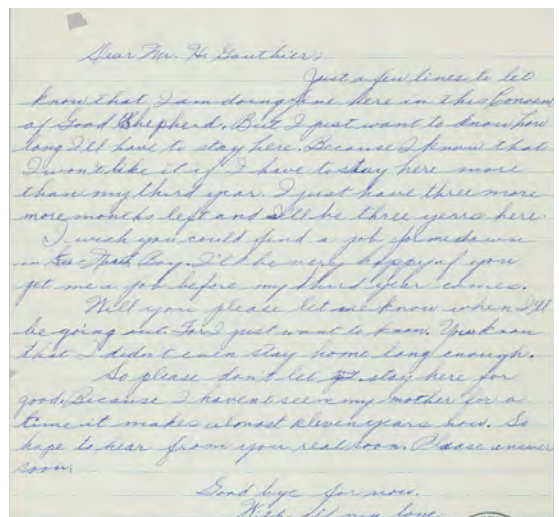 Dear Mr. H. Gauthier;
Just a few lines to let
know that I am doing fine here in this Convent
of Good Shepherd. But I just want to know how
long I'll have to stay here. Because I know that
I won't like it if I have to stay here more
than my third year. I just have three more
more months left and I'll be three years here.
I wish you could find a job for me down
in Bay. I'll be very happy if you
get me a job before my third year comes.
Will you please let me know when I'll
be going out. For I just want to know. You know
that I didn't even stay home long enough.
So please don't let stay here for
good. Because I havent seen my mother for a
time it makes almost eleven years now. So
hope to hear from you real soon. Please answer
soon.
Good bye for now.
With all my love